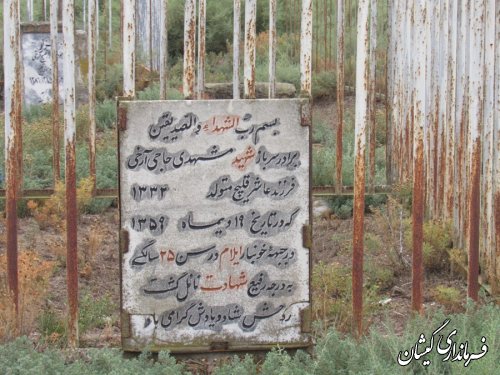 بسم رب الشهداء والصدیقین
برادر سرباز شهید مشهدی حاجی آزخی
فرزند عاشر قلیچ متولد ۱۳۳۴
که در تاریخ ۱۹ دیماه ۱۳۵۹
در جبهه خونبار ایلام در سن ۲۵ سالگی
به درجه رفیع شهادت نائل گشت
روحش شاد و یادش گرامی باد
فرمانداری گمیشان